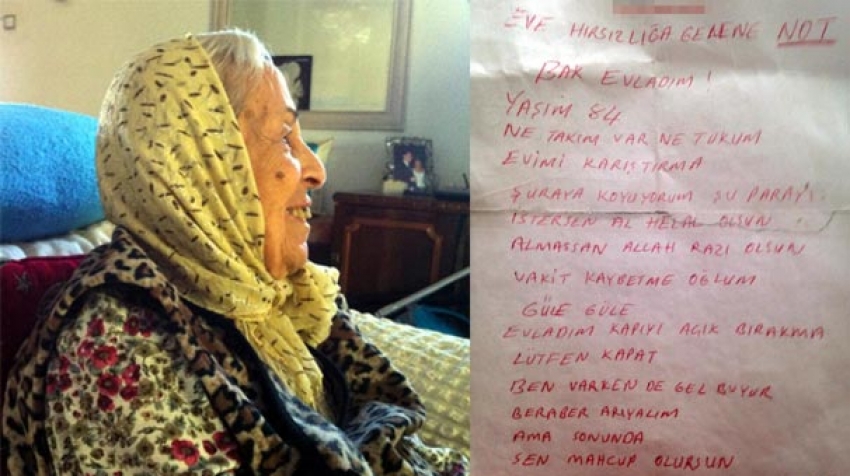 EVE HIRSIZLIĞA GELENE NOT
BAK EVLADIM!
YAŞIM 84
NE TAKIM VAR NE TUKUM
EVİMİ KARIŞTIRMA
ŞURAYA KOYUYORUM ŞU PARAYI
İSTERSEN AL HELAL OLSUN
ALMASSAN ALLAH RAZI OLSUN
VAKİT KAYBETME OĞLUM
GÜLE GÜLE
EVLADIM KAPIYI AÇIK BIRAKMA
LÜTFEN KAPAT
BEN VARKEN DE GEL BUYUR
BERABER ARIYALIM
AMA SONUNDA
SEN MAHCUP OLURSUN